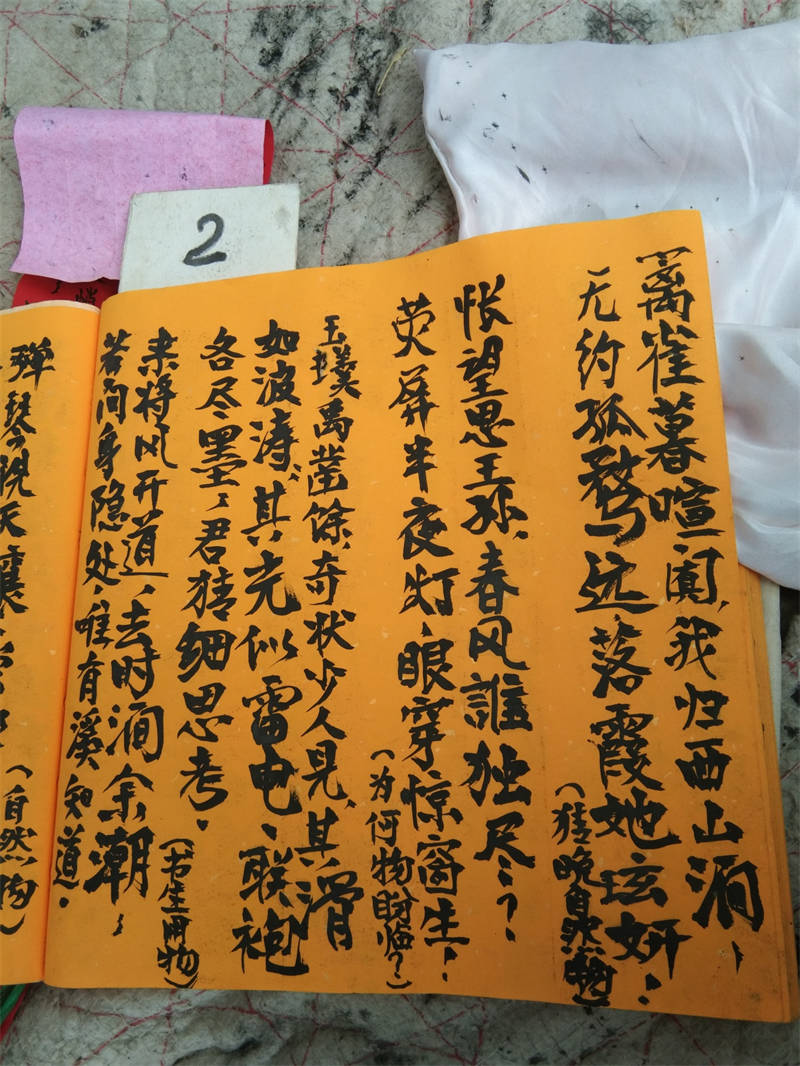 2
离雀暮喧阗,我归西山涧,
无约孤鹜远落霞她玹妍.
(猜晚自然物)
怅望思王孙,春风谁独尽?
荧屏半夜灯,眼穿惊窗生.
(为何物盼临?)
玉璞禹凿馀,奇状少人见,其滑
如波涛,其光似雷电,联袍
各尽墨,君猜细思考.
(书生用物)
来将风开道,去时涧余潮,
若问身隐处,唯有溪知道.
(自然物)
弹琴晚天